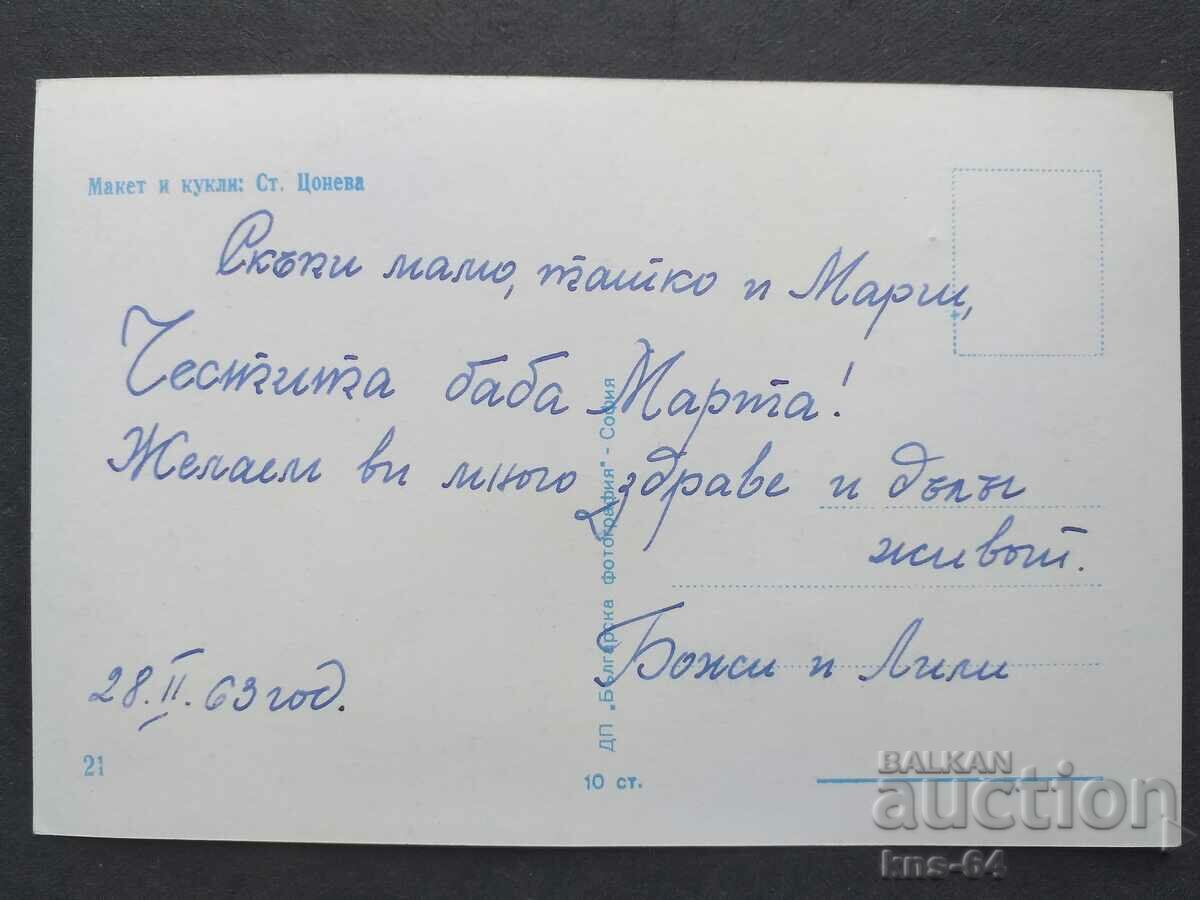 Макет и кукли: Ст. Цонева
Скъпи мамо, татко и Марги,
Честита баба Марта!
Желаем ви много здраве и дълъг
живот.
Божи и Лили
28.II.63 год.
21
10 ст.
ДП „Българска фотография" - София
BALKAN
auction
kns-64